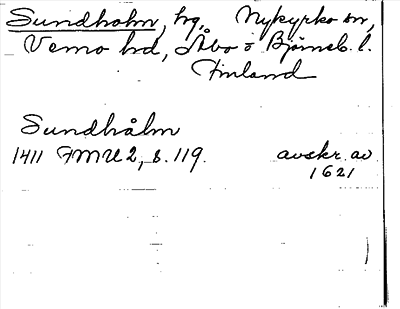 Sundholm, hg, Nykyrko sn,
Vemo hd, Åbo o Björneb. l.
Finland
Sundhålm
1411 FMU 2, s. 119. avskr. av
1621